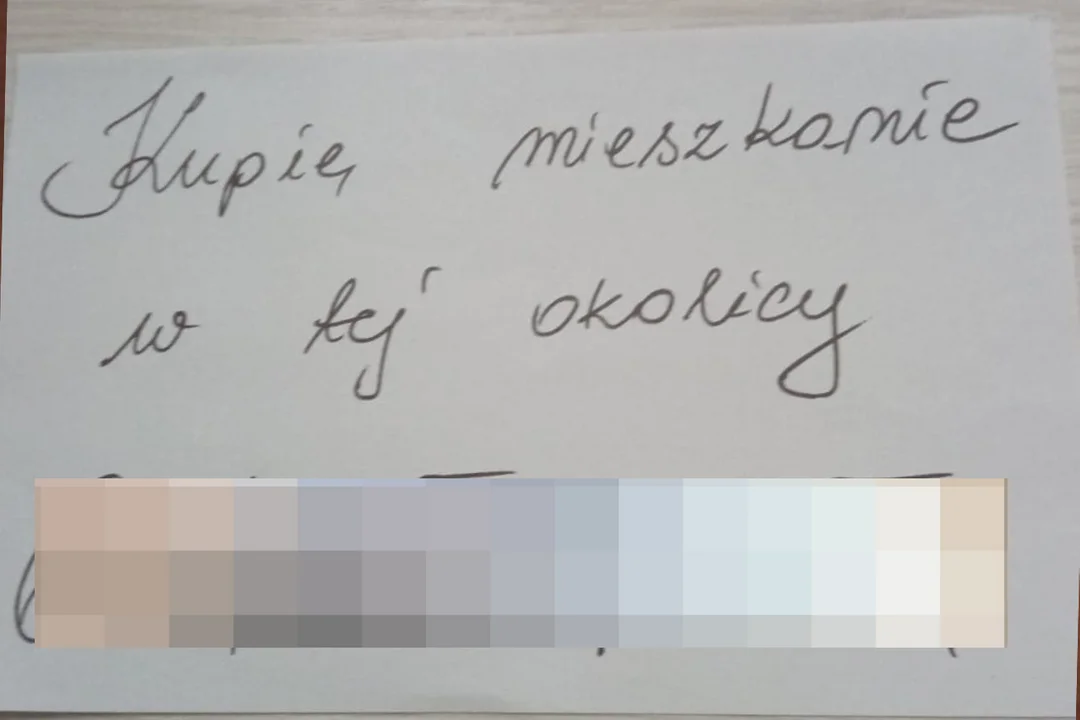 Kupię mieszkanie
w tej okolicy